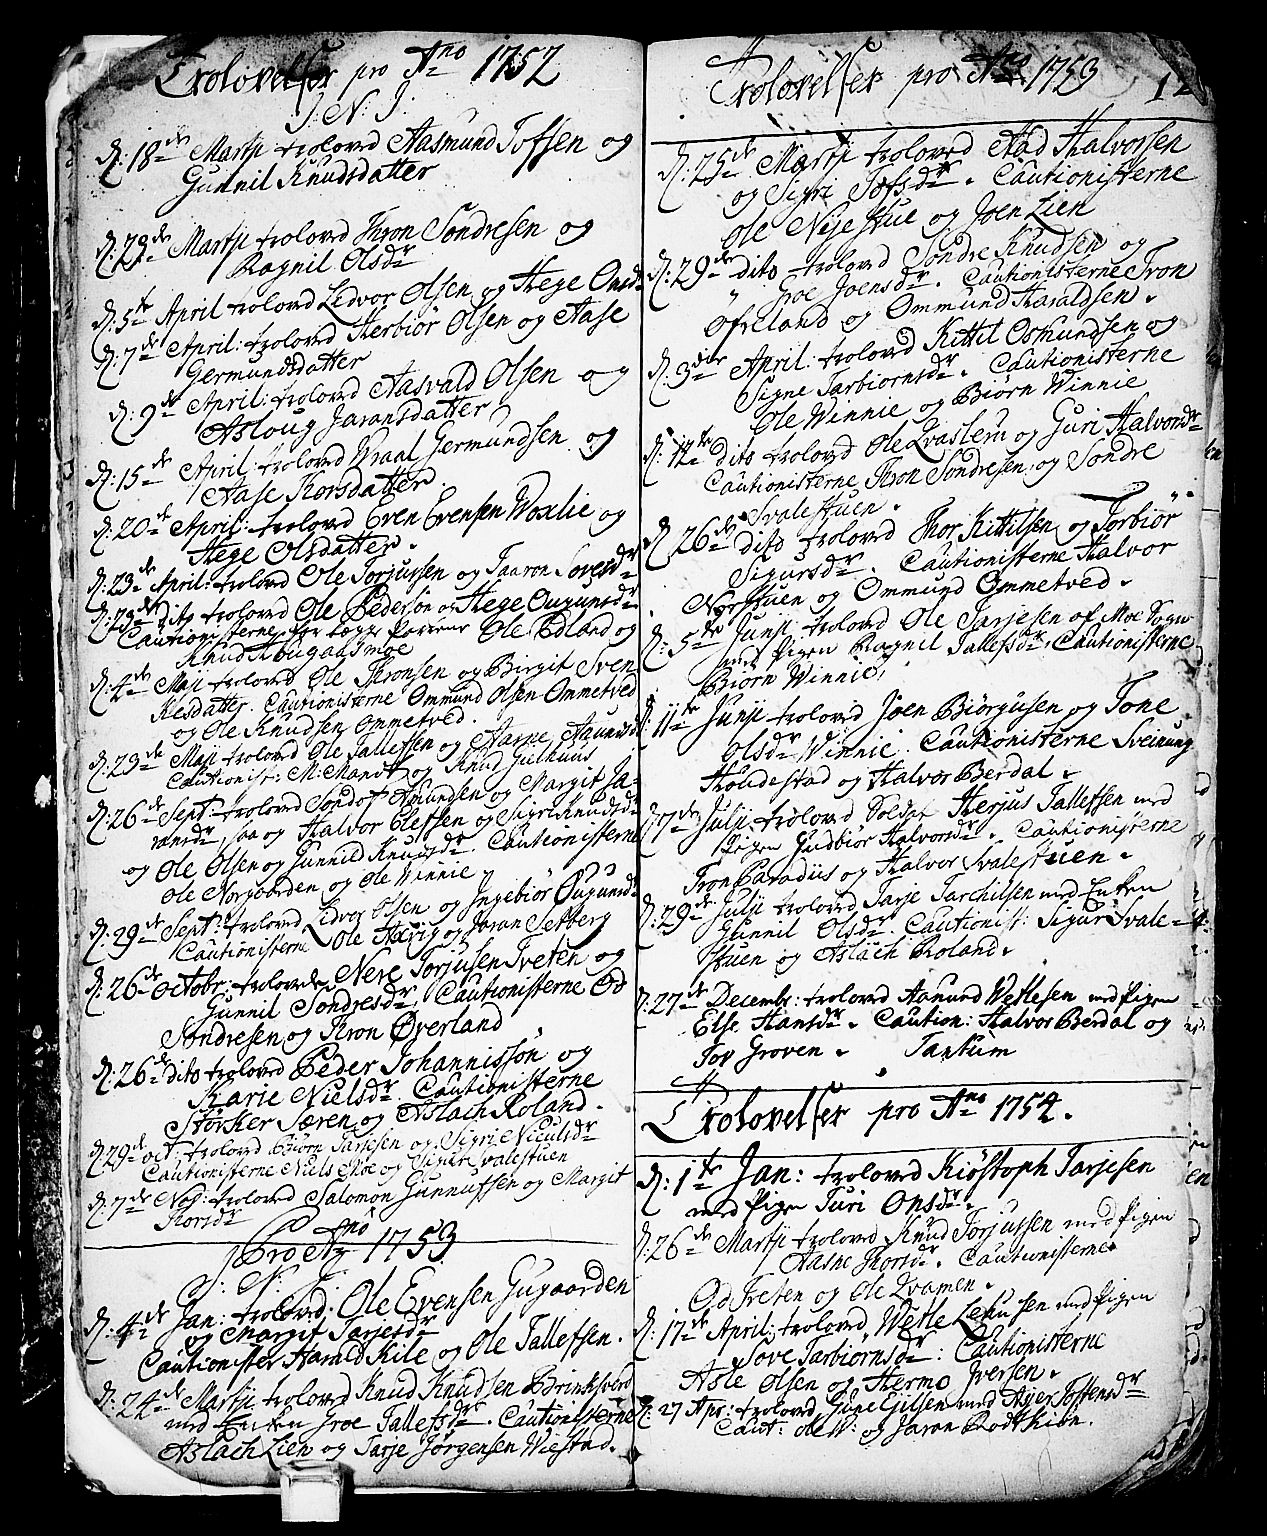 Trolovelser pro Ao 1752
J: N: J:
D: 18de Martji trolovd Aasmund Tofsen og
Gunnil Knudsdatter
D: 22de Martji trolovd Thron Sondresen og
Ragnil Olsdr
D: 5te April trolovd Ledvor Olsen og Hege Onsdr
D: 7de April: trolovd Herbiør Olsen og Aase
Germundsdatter
D: 9de April: trolovd Aasvald Olsen og
Asloug Jaransdatter
D: 15de April: trolovd Wraal Germundsen og
Aase Thorsdatter.
D: 20de April: trolovd Even Evensen Woxlie og
Hege Olsdatter.
D: 23de April: trolovd Ole Torjussen og Taaron Sovesdr
D: 23de dito trolovd Ole Pedersøn og Hege Ougunsdr
Cautionisterne for begge Parrene Ole Edland og
Knud Haugaasmoe
D: 4de Maji trolovd Ole Thronsen og Birgit Sven
Kesdatter. Cautionisterne Ommund Olsen Ommetved
og Ole Knudsen Ommetved.
D: 29de Maji trolovd Ole Tallefsen og Aasne Aanundsdr
Cautionist: M: Mandt og Knud Gulhuus
D: 26de Sept: trolovd Sondof Amundsen og Margit Ja-
ransdr, saa og Halvor Olefsen og Sigri Knudsdr
og Ole Olsen og Gunnild Knudsdr. Cautionisterne
Ole Norgaarden og Ole Winnie
D: 29de Sept: trolovd Ledvor Olsen og Ingebiør Ougunsdr
Cautionisterne Ole Harig og Jaran Setberg
D: 26de Octobr: trolovede Neve Torjusen Tveten og
Gunnil Sondresdr, Cautionisterne Od
Sondresen og Thron Øverland
D: 26de dito trolovd Peder Johannissøn og
Karie Nielsdr. Cautionisterne
Størker Særen og Aslach Roland.
D: 29de Oct: trolovd Biørn Tarjesen og Sigri Niculsdr
Cautionisterne Niels Moe og Sigur Svalestuen
D: 7de Nov: trolovd Salomon Gunnufsen og Margit
Thorsdr
Pro Ao 1753
J: N: J:
D: 4de Jan: trolovd: Ole Evensen Gugaarden
og Margit Tarjesdr
Cautionister Harald Kile og Ole Tallefsen.
D: 24de Martji trolovd Knud Knudsen Brinksverd
med Enken Groe Tallefsdr. Cautionisterne
Aslach Lien og Tarje Jørgensen Wiestad.
Trolovelser pro Ao 1753
D: 25de Martji trolovd Aad Halvorsen
og Sigri Tofsdr. Cautionisterne
Ole Nyestue og Joen Lien
D: 29de dito trolovd Sondre Knudsen og
Groe Joensdr. Cautionisterne Tron
Øfreland og Ommund Haraldsen.
D: 3die April: trolovd Kittil Osmundsen og
Signe Tarbiornsdr. Cautionisterne
Ole Winnie og Biørn Winnie
D: 12te dito trolovd Ole Qvaslem og Guri Halvorsdr
Cautionisterne Thron Sondresen og Sondre
Svalestuen.
D: 26de dito trolovd Thor Kittilsen og Torbiør
Sigursdr. Cautionisterne Halvor
Norstuen og Ommund Ommetved.
D: 5te Junji trolovd Ole Tarjesen af Moe Sogn
med Pigen Ragnil Tallefsdr, Cautionisterne
Biørn Winnie,
D: 11te Junji trolovd Joen Biörgusen og Tone
Olsdr Winnie. Cautionisterne Sveinung
Houdestad og Halvor Berdal.
D: 7de Julji: trolovd Soldat Herjus Tallefsen med
Pigen Gudbiør Halvorsdr. Cautionisterne
Tron Paradiis og Halvor Svalestuen.
D: 29de Julji trolovd Tarje Tarchilsen med Enken
Gunnil Olsdr. Cautionist: Sigur Svale-
stuen og Aslach Roland.
D: 27de Decembr: trolovd Aanund Wetlesen med Pigen
Else Hansdr. Caution: Halvor Berdal og
Tov Groven. Tantum
Trolovelser pro Ao 1754.
D: 1te Jan: trolovd Kiøstoph Tarjesen
med Pigen Turi Onsdr.
D: 26de Martji trolovd Knud Torjussen med Pigen
Aasne Thorsdr. Cautionisterne
Od Treten og Ole Qvamen.
D: 17de April: trolovd, Wetle Leku sen med Pigen
Sove Tarbiornsdr: Cautionisterne
Asle Olsen og Hermo Iversen.
D: 27 Apr: trolovd Gune Gilsen med Ayer Tostensdr
Caut: Ole W: og Jaran Rodtheim.